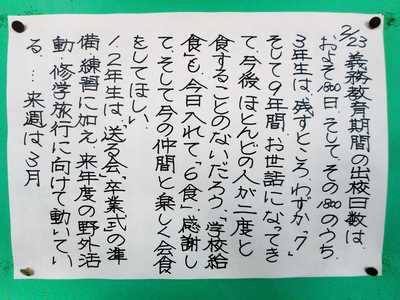 2/23 義務教育期間の出校日数は、
およそ1800日、そして、その1800のうち、
3年生は、残すところ、わずか“7”
そして9年間、お世話になってき
て、今後 ほとんどの人が 二度と
食することのないだろう、「学校給
食」も、今日入れて、“6”食、感謝し
て、そして今の仲間と楽しく会食
をしてほしい。
1、2年生は、送る会、卒業式の準
備・練習に加え、来年度の野外活
動・修学旅行に向けて動いてい
る… 来週は、3月